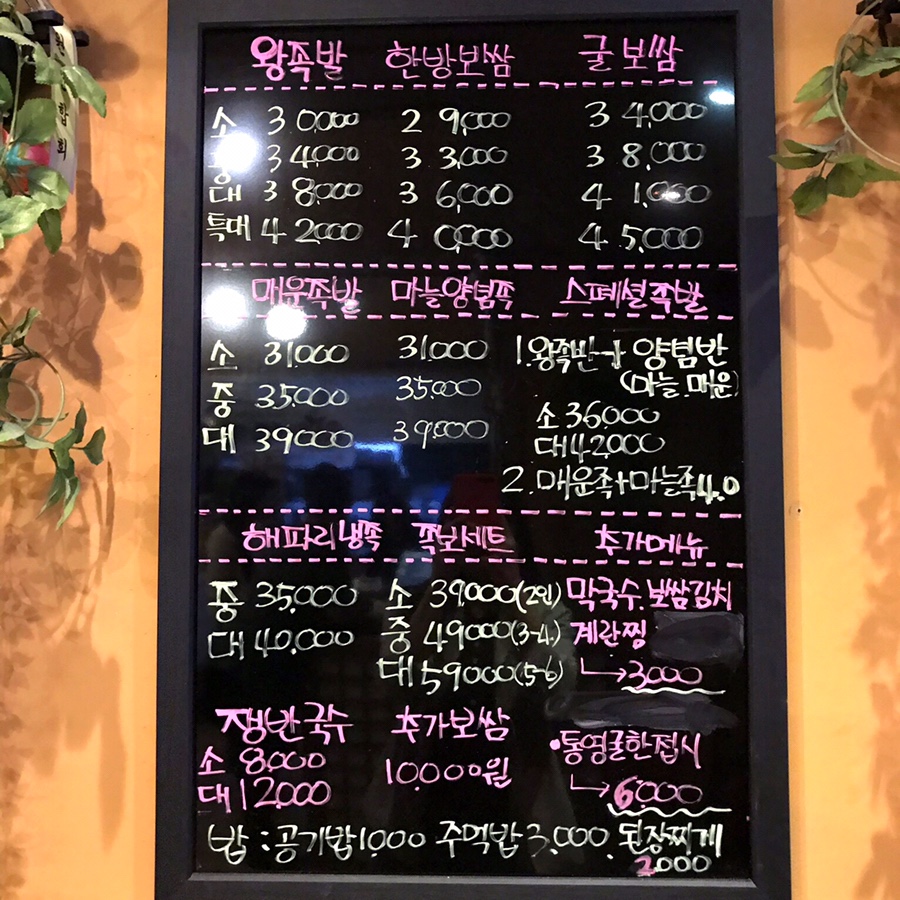 왕족발 한방보쌈 굴보쌈
소 30,000 29,000 34,000
34,000 33,000 38,000
대 38,000 36,000 41,000
특대 42,000 40,000 45,000
매운족발 마늘양념족 스페셜족발
소 31,000 31,000 1.왕족반+양념반
(마늘.매운)
중 35,000 35,000
소 36,000
대 39,000 39,000
대 42,000
2.매운족+마늘족 4.0
해파리냉족 족보세트 추가메뉴
중 35,000 소 39,000(2인) 막국수.보쌈김치
대 40,000 중 49,000(3-4) 계란찜
대 59,000(5-6) →3,000
쟁반국수 추가보쌈
•통영굴한접시
소 8,000 10,000원
대 12,000 →6,000
밥:공기밥1,000 주먹밥3,000. 된장찌개
2,000